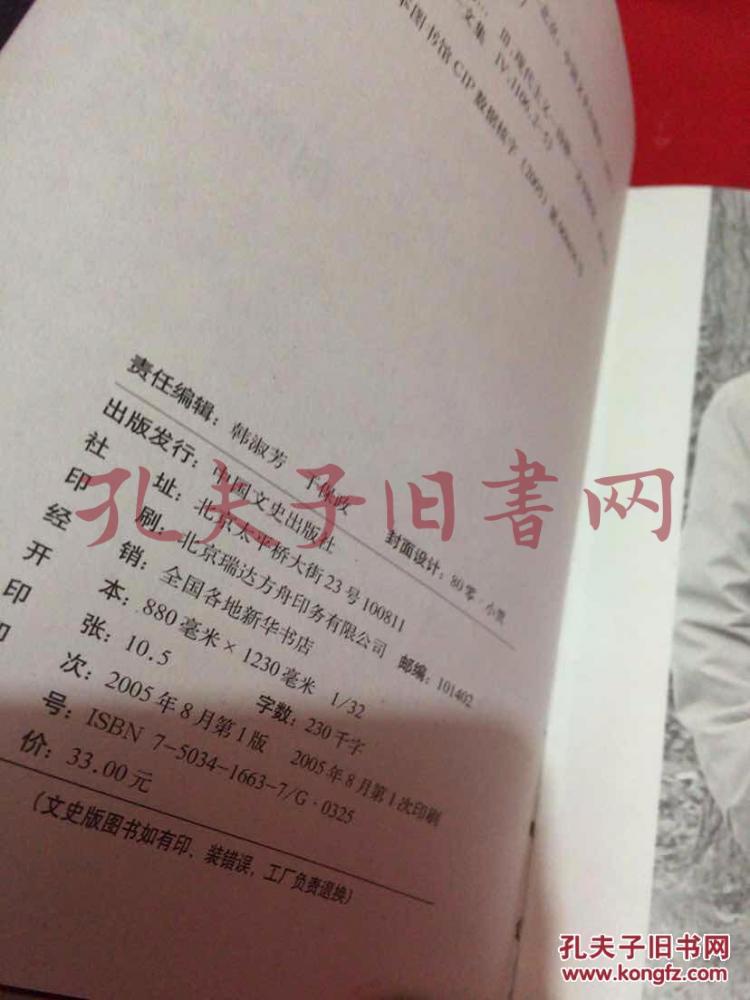 Ⅲ.现代主义
文集 Ⅳ.I106.2-53
图书馆CIP数据核字(2005)第
责任编辑：韩淑芳 于保政 封面设计：80零·小贾
出版发行：中国文史出版社
社 址：北京太平桥大街23号100811
印 刷：北京瑞达方舟印务有限公司 邮编：101402
经 销：全国各地新华书店
开 本：880毫米×1230毫米 1/32
印 张：10.5 字数：230千字
印 次：2005年8月第1版 2005年8月第1次印刷
号：ISBN 7-5034-1663-7/G·0325
价：33.00元
(文史版图书如有印、装错误，工厂负责退换)
孔夫子旧书网
孔夫子旧书网
www.kongfz.com